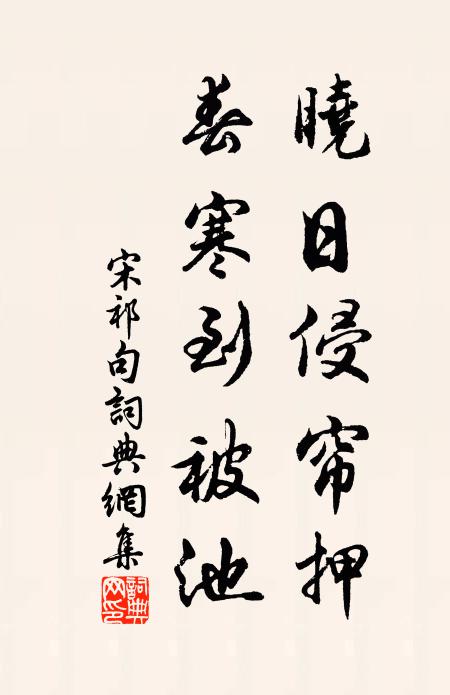 曉日侵帘押
春寒到被池
宋祁句詞典網集
詞典网印